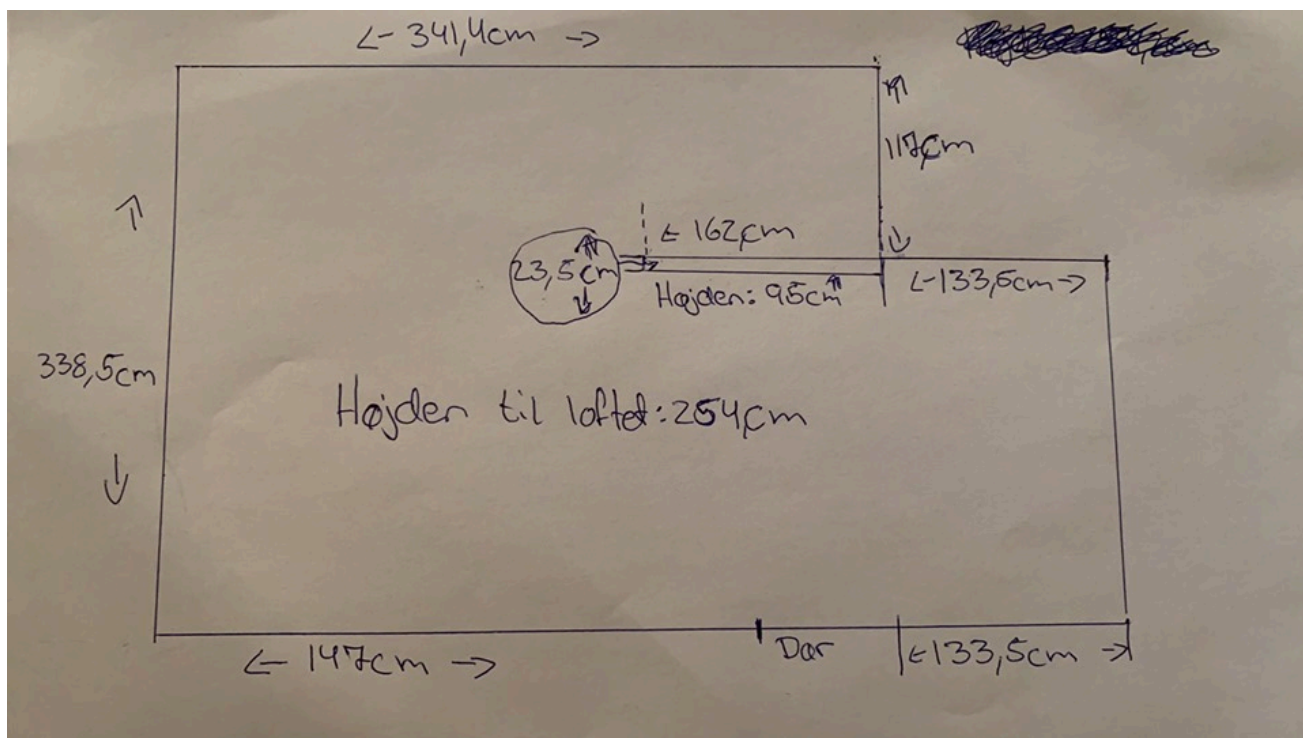 <- 341,4cm ->
117cm
<- 162cm
23,5cm
Højden: 95cm
<-133,5cm->
338,5cm
Højden til loftet: 254cm
<- 147cm ->
Dør
<-133,5cm ->